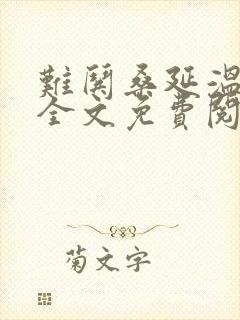 難鬨桑延溫
全文免費閱
菊文字